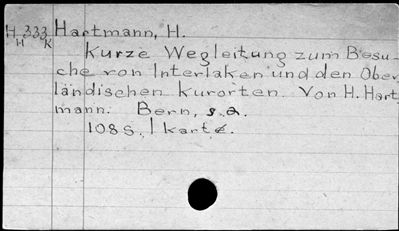 H 333 Hartmann, H.
H K
Kurze Wegleitung zum Besu-
che von Interlaken und den Ober
ländischen Kurorten. Von H. Hart
mann. Bern, s.a.
108 S. 1 Karte.